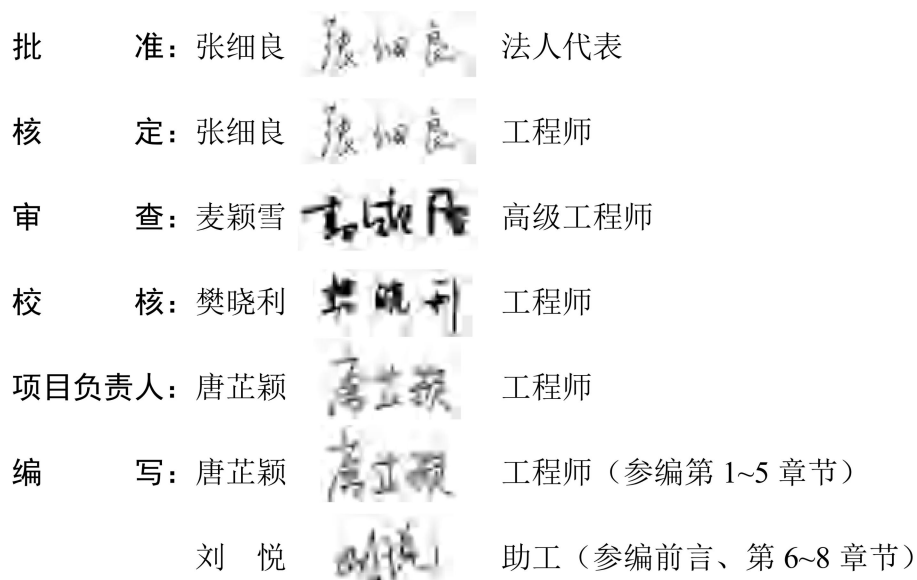 批 准：张细良 张细良 法人代表
核 定：张细良 张细良 工程师
审 查：麦颖雪 高级工程师
校 核：樊晓利 樊晓利 工程师
项目负责人：唐芷颖 唐芷颖 工程师
编 写：唐芷颖 唐芷颖 工程师（参编第 1~5 章节）
刘 悦 助工（参编前言、第 6~8 章节）